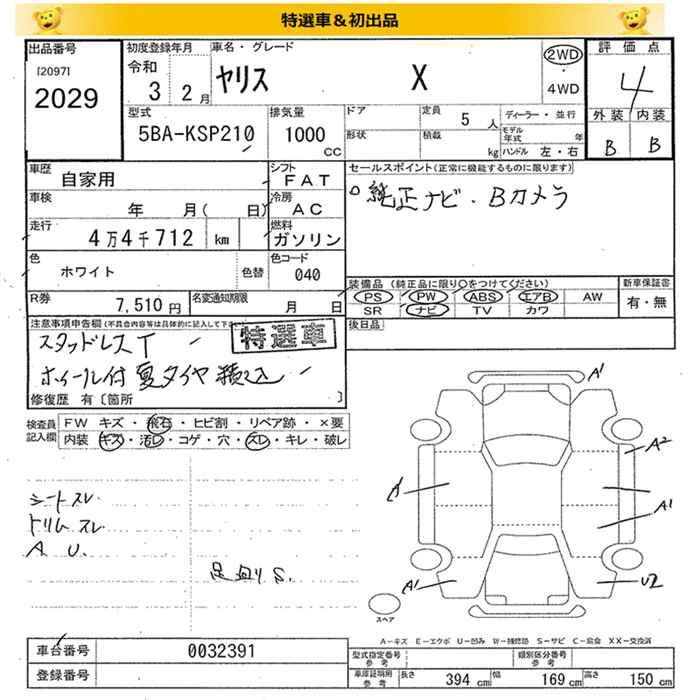 特選車＆初出品
出品番号 初度登録年月 車名・グレード 評価点
[2097] 令和 2WD
2029 3 2月 ヤリス X ・ 4WD 4
型式 排気量 ドア 定員 5 人 ディーラー・並行 外装 内装
5BA-KSP210 1000 CC 形状 積載 kg モデル年式 年 B B
ハンドル 左・右
車歴 自家用 シフト FAT セールスポイント(正常に機能するものに限ります)
車検 年 月( 日) 冷房 AC 純正ナビ・Bカメラ
走行 4万4千712 km 燃料 ガソリン
色 ホワイト 色替 色コード 040
装備品 (純正品に限り○をつけてください) 新車保証書
PS PW ABS エアB AW 有・無
SR ナビ TV カワ
R券 7,510円 名変通知期限 月 日
後日品
注意事項申告欄(不具合内容等は具体的に記入して下さい)
特選車
スタッドレスT
ホイール付夏タイヤ積込
修復歴 有〔箇所 〕
検査員記入欄 FW キズ・飛石・ヒビ割・リペア跡・×要
内装 キズ・汚レ・コゲ・穴・スレ・キレ・破レ
A1
A2
A1
シートスレ
トリムスレ
A U.
足廻りS.
A1
U2
スペア
A-キズ E-エクボ U-凹み W-補修跡 S-サビ C-腐食 XX-交換済
車台番号 0032391
登録番号
型式指定番号 参考 類別区分番号 参考
車庫証明用 参考 長さ 394 cm 幅 169 cm 高さ 150 cm